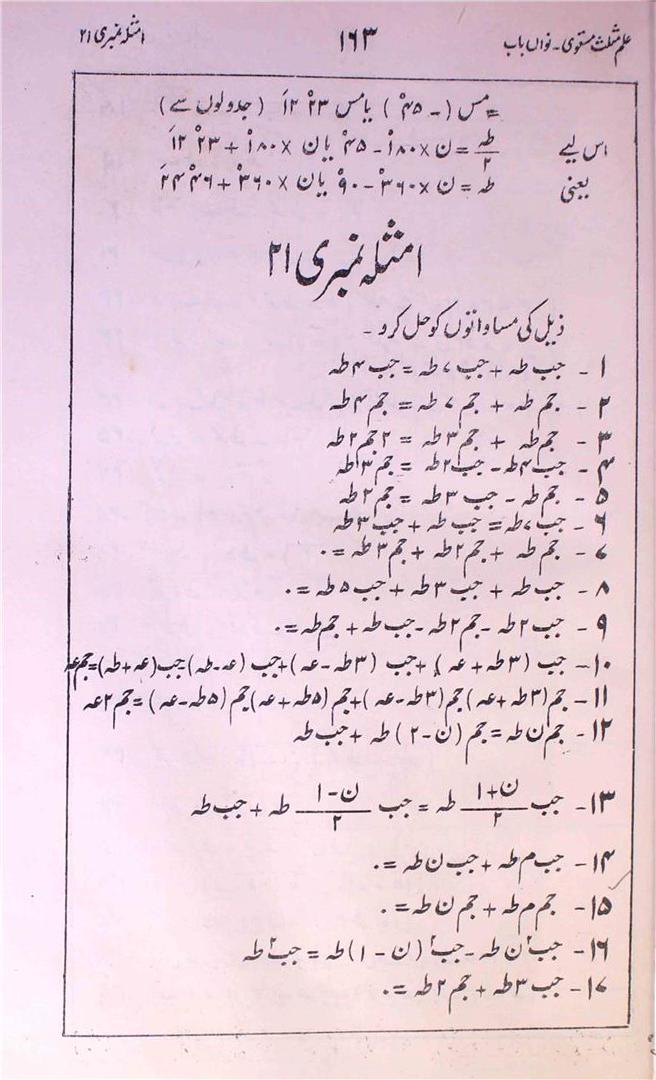 علم مثلث مستوی۔ نواں باب ۱۶۳ امثلہ نمبری ۲۱
= مس (- ۴۵°) یا مس ۲۳° ۱۲َ (جدولوں سے)
اس لیے طہ/۲ = ن × ۱۸۰° - ۴۵° یا ن × ۱۸۰° + ۲۳° ۱۲َ
یعنی طہ = ن × ۳۶۰° - ۹۰° یا ن × ۳۶۰° + ۴۶° ۲۴َ
امثلہ نمبری ۲۱
ذیل کی مساواتوں کو حل کرو۔
۱- جب طہ + جب ۷ طہ = جب ۴ طہ
۲- جم طہ + جم ۷ طہ = جم ۴ طہ
۳- جم طہ + جم ۳ طہ = ۲ جم ۲ طہ
۴- جب ۴ طہ - جب ۲ طہ = جم ۳ طہ
۵- جم طہ - جب ۳ طہ = جم ۲ طہ
۶- جب ۷ طہ = جب طہ + جب ۳ طہ
۷- جم طہ + جم ۲ طہ + جم ۳ طہ = ۰
۸- جب طہ + جب ۳ طہ + جب ۵ طہ = ۰
۹- جب ۲ طہ - جم ۲ طہ - جب طہ + جم طہ = ۰
۱۰- جب (۳ طہ + عہ) + جب (۳ طہ - عہ) + جب (عہ - طہ) جب (عہ + طہ) = جم عہ
۱۱- جم (۳ طہ + عہ) جم (۳ طہ - عہ) + جم (۵ طہ + عہ) جم (۵ طہ - عہ) = جم ۲ عہ
۱۲- جم ن طہ = جم (ن - ۲) طہ + جب طہ
۱۳- جب (ن + ۱)/۲ طہ = جب (ن - ۱)/۲ طہ + جب طہ
۱۴- جب م طہ + جب ن طہ = ۰
۱۵- جم م طہ + جم ن طہ = ۰
۱۶- جب² ن طہ - جب² (ن - ۱) طہ = جب² طہ
۱۷- جب ۳ طہ + جم ۲ طہ = ۰